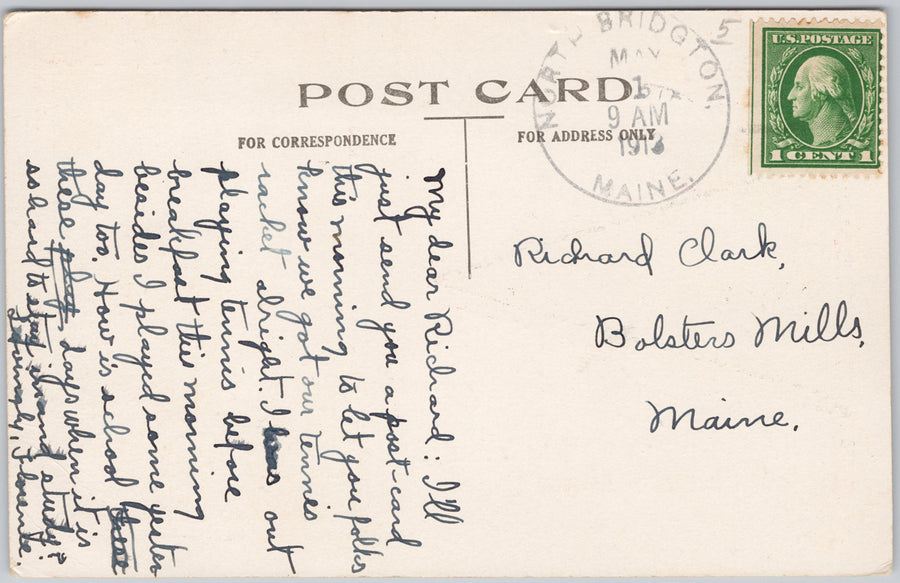 POST CARD
FOR CORRESPONDENCE
FOR ADDRESS ONLY
NORTH BRIDGTON,
MAY
1
9 AM
1913
MAINE.
5
U.S. POSTAGE
1 CENT 1
My dear Richard: I'll
just send you a post-card
this morning to let you folks
know we got our tennis
racket alright. I was out
playing tennis before
breakfast this morning
besides I played some yester
day too. How is school these
these play days when it is
so hard to stay in and study?
Lovingly, Florence.
Richard Clark,
Bolsters Mills,
Maine.